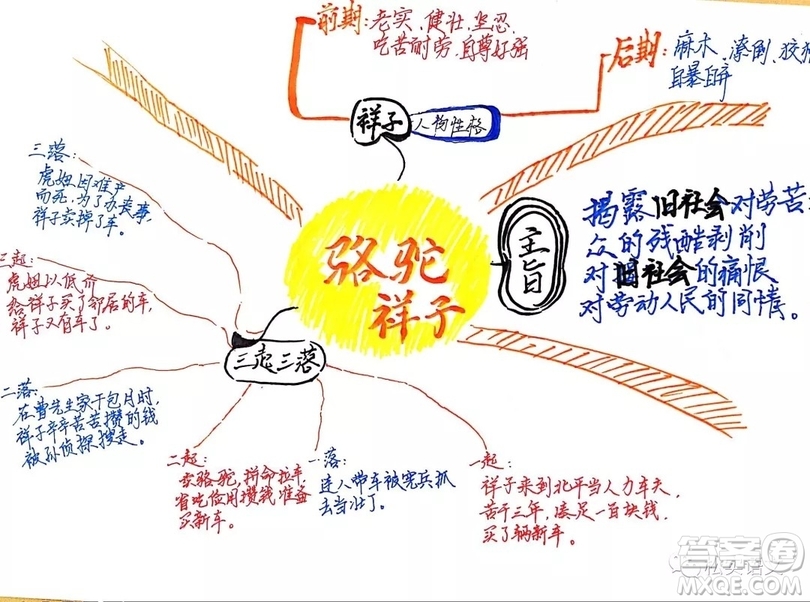 骆驼
祥子
祥子
人物性格
前期:老实、健壮、坚忍、
吃苦耐劳、自尊好强
后期:麻木、潦倒、狡猾
自暴自弃
主旨
揭露旧社会对劳苦
众的残酷剥削
对旧社会的痛恨
对劳动人民的同情。
三起三落
一起:
祥子来到北平当人力车夫,
苦干三年,凑足一百块钱,
买了辆新车。
一落:
连人带车被宪兵抓
去当壮丁。
二起:
卖骆驼,拼命拉车,
省吃俭用攒钱准备
买新车。
二落:
在曹先生家干包月时,
祥子辛辛苦苦攒的钱
被孙侦探搜走。
三起:
虎妞以低价
给祥子买了邻居的车,
祥子又有车了。
三落:
虎妞因难产
而死,为了办丧事,
祥子卖掉了车。
答案圈
MXQE.COM